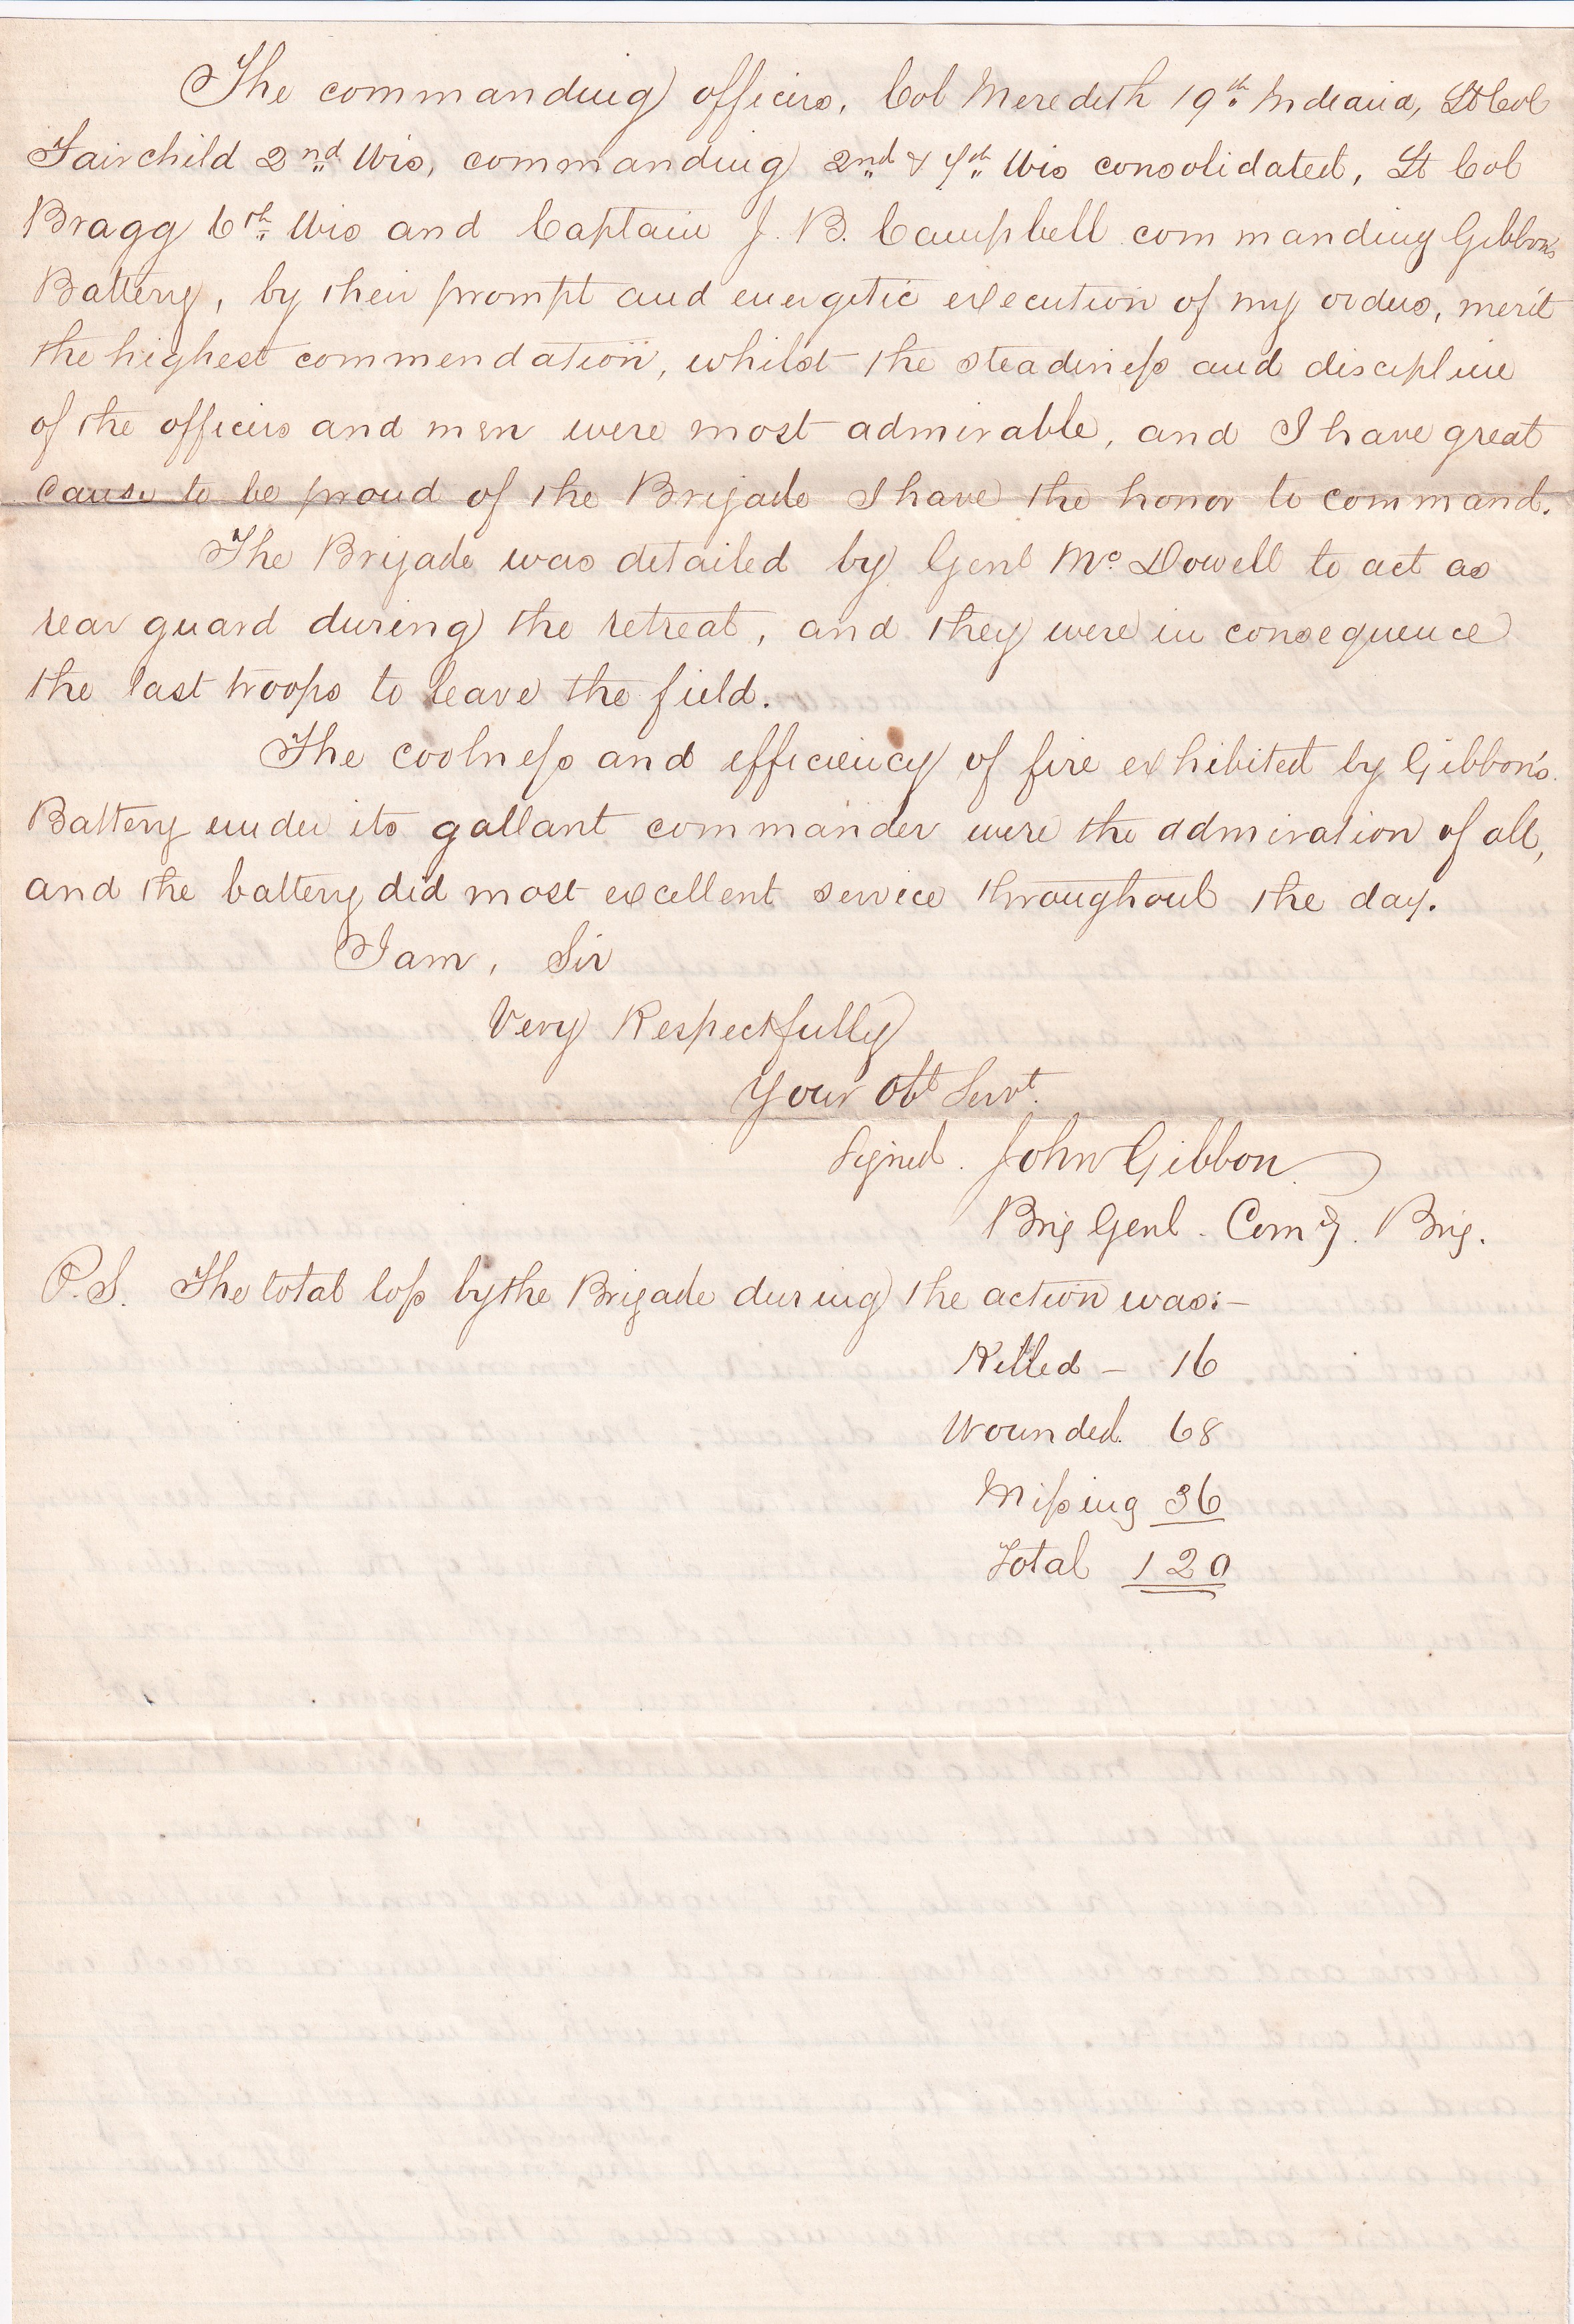 The commanding officers, Col Meredith 19th Indiana, Lt Col
Fairchild 2nd Wis, commanding 2nd & 7th Wis consolidated, Lt Col
Bragg 6th Wis and Captain J. B. Campbell commanding Gibbon's
Battery, by their prompt and energetic execution of my orders, merit
the highest commendation, whilst the steadiness and discipline
of the officers and men were most admirable, and I have great
cause to be proud of the Brigade I have the honor to command.
The Brigade was detailed by Genl McDowell to act as
rear guard during the retreat, and they were in consequence
the last troops to leave the field.
The coolness and efficiency of fire exhibited by Gibbon's
Battery under its gallant commander were the admiration of all,
and the battery did most excellent service throughout the day.
I am, Sir
Very Respectfully
Your Obt Servt.
Signed. John Gibbon
Brig Genl. Comg. Brig.
P.S. The total loss by the Brigade during the action was:-
Killed - 16
Wounded. 68
Missing 36
Total 120